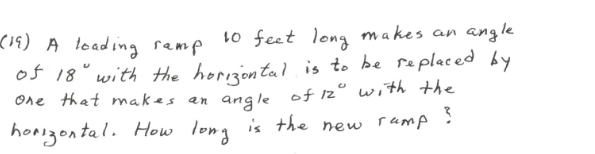 (19) A loading ramp 10 feet long makes an angle
of 18° with the horizontal is to be replaced by
one that makes an angle of 12° with the
horizontal. How long is the new ramp?